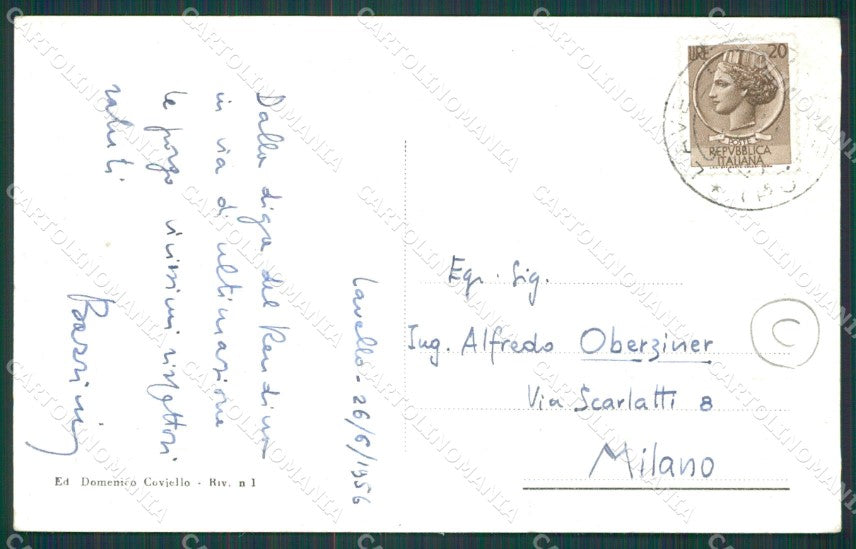 Lavello - 26/6/1956
Dalla diga del Rendina
in via di ultimazione
le porgo vivissimi rispettosi
saluti
Eg. Sig.
Ing. Alfredo Oberziner
Via Scarlatti 8
Milano
LIRE 20
POSTE
REPVBBLICA
ITALIANA
Ed Domenico Coviello - Riv. n 1
U
CARTOLINOMANIA